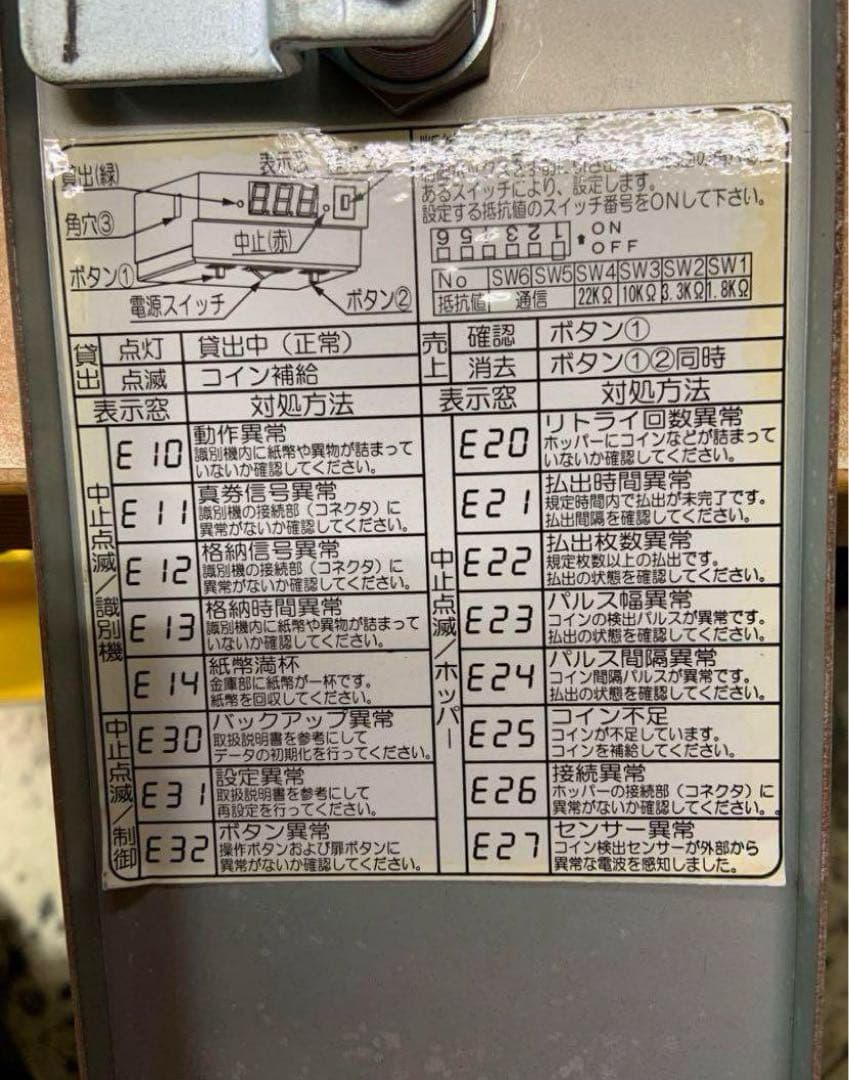 表示窓
貸出(緑)
角穴③
中止(赤)
ボタン①
電源スイッチ
ボタン②
あるスイッチにより、設定します。
設定する抵抗値のスイッチ番号をONして下さい。
1 2 3 4 5 6
ON
OFF
No SW6 SW5 SW4 SW3 SW2 SW1
抵抗値 通信 22KΩ 10KΩ 3.3KΩ 1.8KΩ
貸出 点灯 貸出中(正常)
点滅 コイン補給
売上 確認 ボタン①
消去 ボタン①②同時
表示窓 対処方法
中止点滅/識別機
E10 動作異常
識別機内に紙幣や異物が詰まって
いないか確認してください。
E11 真券信号異常
識別機の接続部(コネクタ)に
異常がないか確認してください。
E12 格納信号異常
識別機の接続部(コネクタ)に
異常がないか確認してください。
E13 格納時間異常
識別機内に紙幣や異物が詰まって
いないか確認してください。
E14 紙幣満杯
金庫部に紙幣が一杯です。
紙幣を回収してください。
中止点滅/制御
E30 バックアップ異常
取扱説明書を参考にして
データの初期化を行ってください。
E31 設定異常
取扱説明書を参考にして
再設定を行ってください。
E32 ボタン異常
操作ボタンおよび扉ボタンに
異常がないか確認してください。
表示窓 対処方法
中止点滅/ホッパー
E20 リトライ回数異常
ホッパーにコインなどが詰まって
いないか確認してください。
E21 払出時間異常
規定時間内で払出が未完了です。
払出間隔を確認してください。
E22 払出枚数異常
規定枚数以上の払出です。
払出の状態を確認してください。
E23 パルス幅異常
コインの検出パルスが異常です。
払出の状態を確認してください。
E24 パルス間隔異常
コイン間隔パルスが異常です。
払出の状態を確認してください。
E25 コイン不足
コインが不足しています。
コインを補給してください。
E26 接続異常
ホッパーの接続部(コネクタ)に
異常がないか確認してください。
E27 センサー異常
コイン検出センサーが外部から
異常な電波を感知しました。